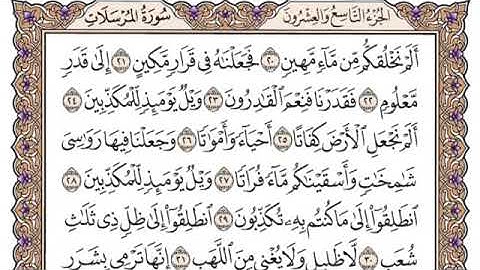 الجُزْءُ التَّاسِعُ وَالعِشْرُونَ سُورَةُ المُرْسَلَات
أَلَمْ نَخْلُقكُّم مِّن مَّآءٍ مَّهِينٍ ٢٠ فَجَعَلْنَٰهُ فِي قَرَارٍ مَّكِينٍ ٢١ إِلَىٰ قَدَرٍ
مَّعْلُومٍ ٢٢ فَقَدَرْنَا فَنِعْمَ ٱلْقَٰدِرُونَ ٢٣ وَيْلٌ يَوْمَئِذٍ لِّلْمُكَذِّبِينَ ٢٤
أَلَمْ نَجْعَلِ ٱلْأَرْضَ كِفَاتًا ٢٥ أَحْيَآءً وَأَمْوَٰتًا ٢٦ وَجَعَلْنَا فِيهَا رَوَٰسِيَ
شَٰمِخَٰتٍ وَأَسْقَيْنَٰكُم مَّآءً فُرَاتًا ٢٧ وَيْلٌ يَوْمَئِذٍ لِّلْمُكَذِّبِينَ ٢٨
ٱنطَلِقُوٓا۟ إِلَىٰ مَا كُنتُم بِهِۦ تُكَذِّبُونَ ٢٩ ٱنطَلِقُوٓا۟ إِلَىٰ ظِلٍّ ذِي ثَلَٰثِ
شُعَبٍ ٣٠ لَّا ظَلِيلٍ وَلَا يُغْنِي مِنَ ٱللَّهَبِ ٣١ إِنَّهَا تَرْمِي بِشَرَرٍ